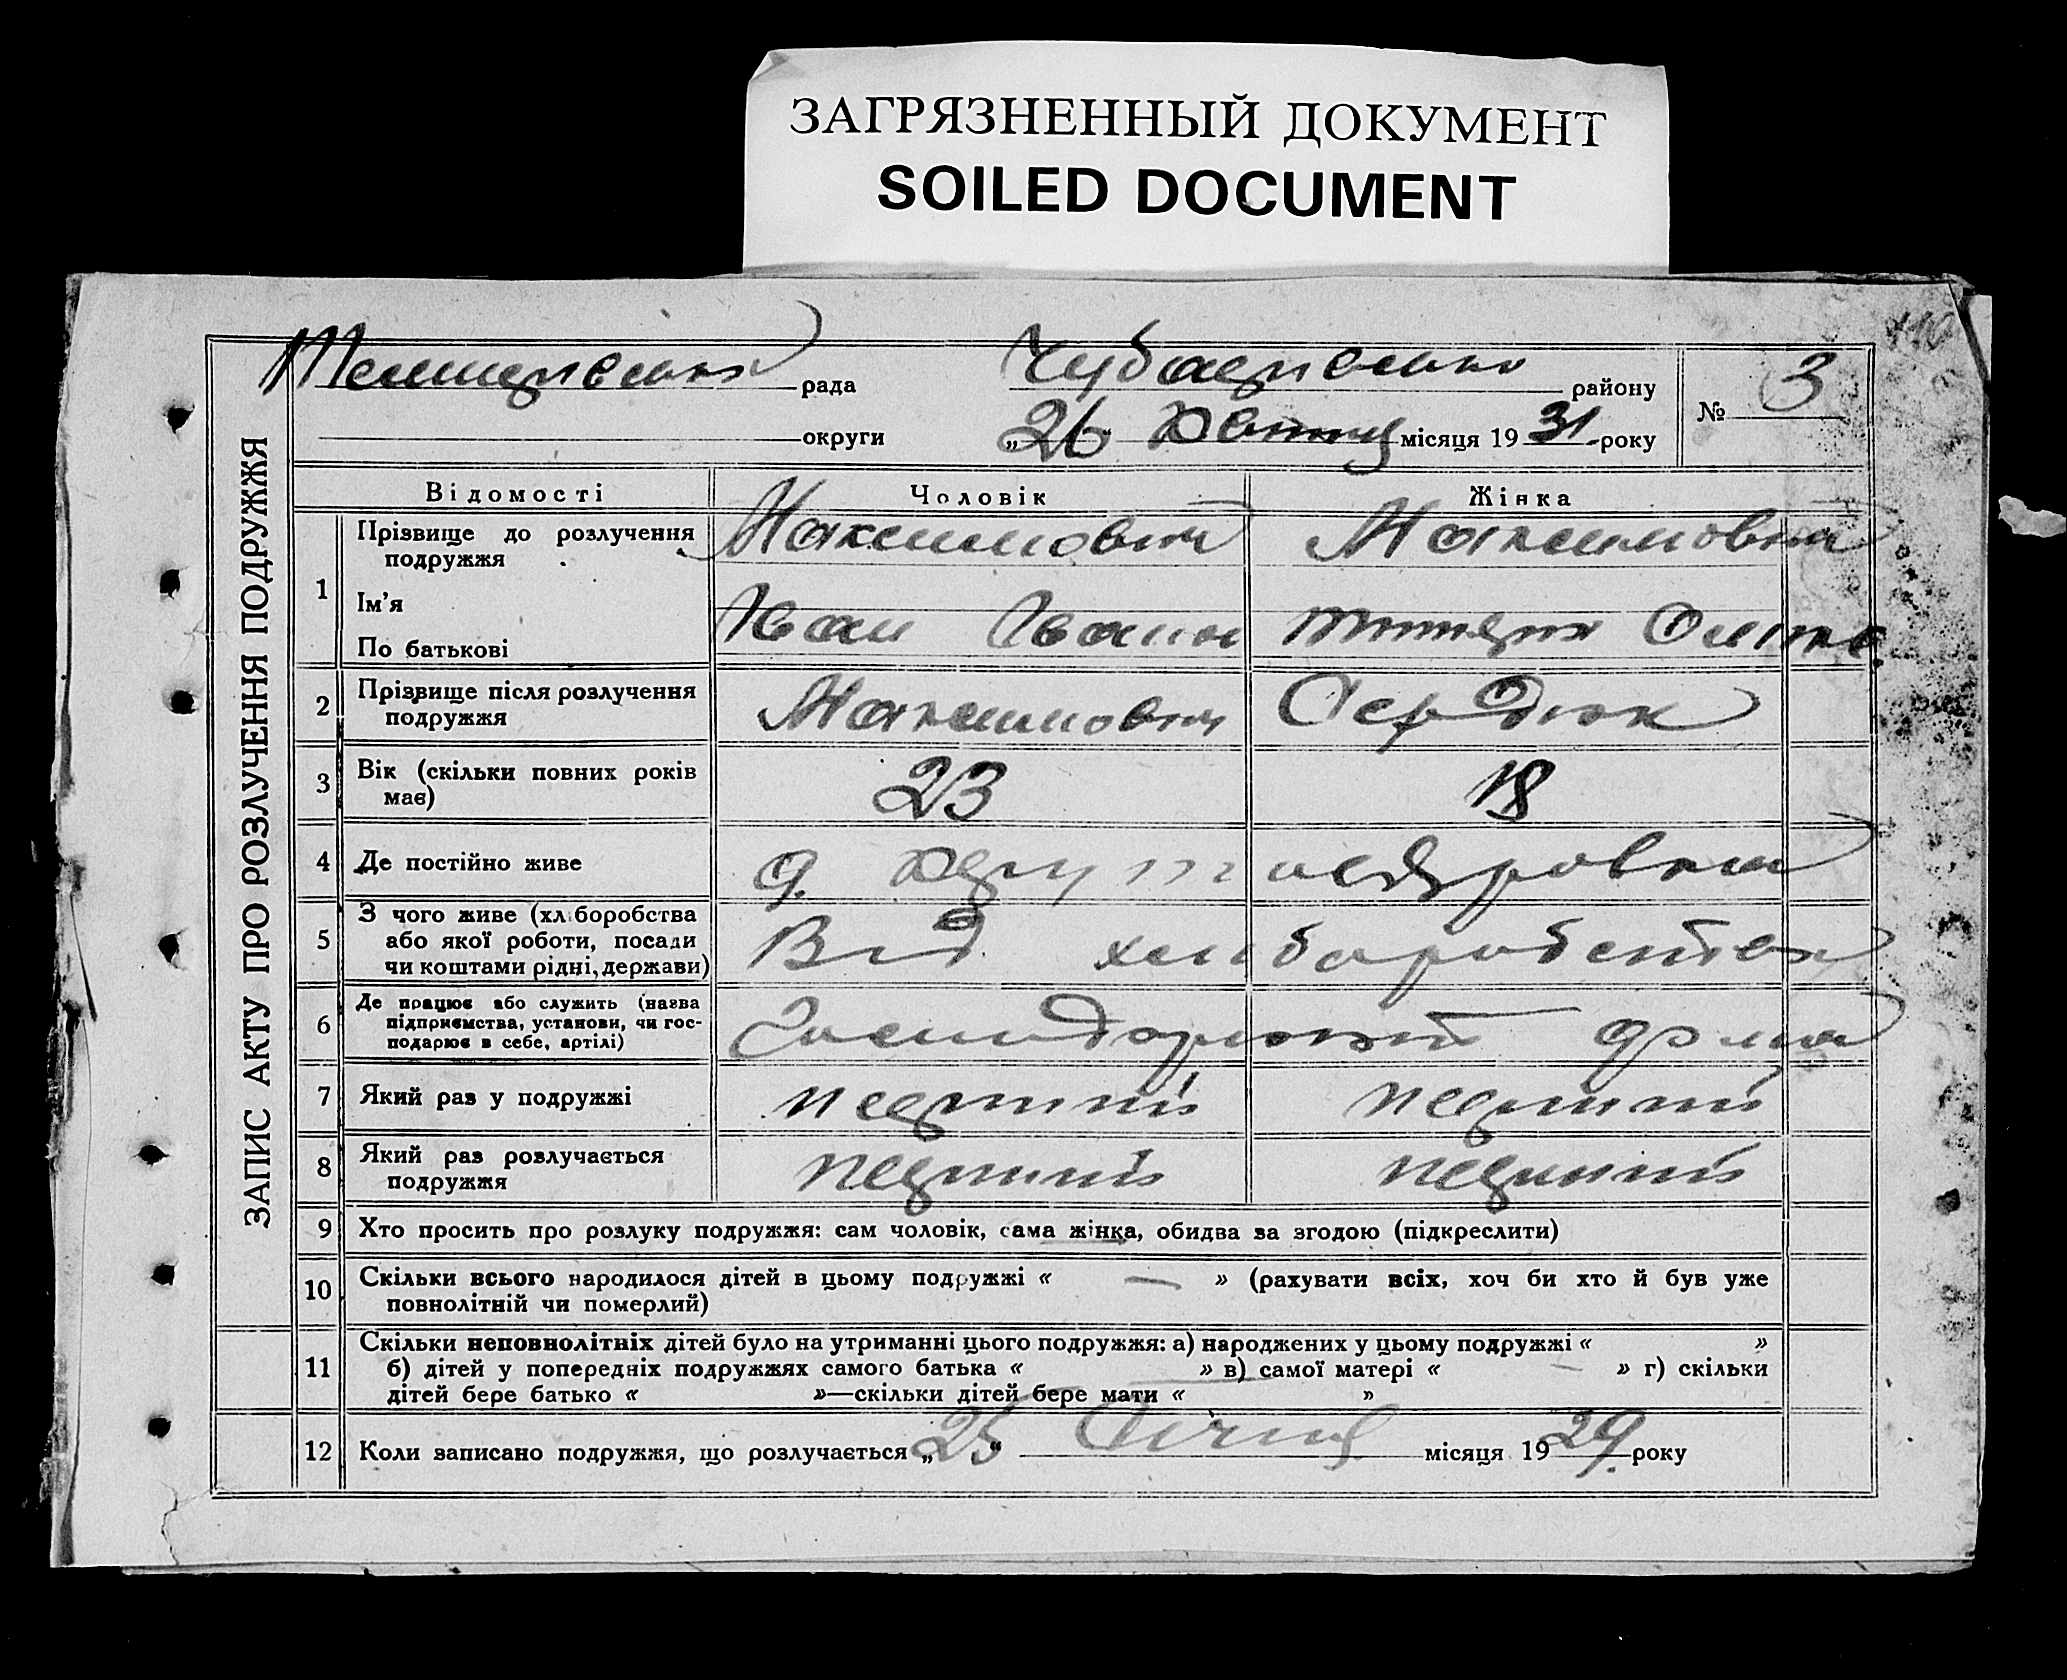 ЗАГРЯЗНЕННЫЙ ДОКУМЕНТ
SOILED DOCUMENT
рада
району
№ 3
округи
„26“ місяця 1931 року
ЗАПИС АКТУ ПРО РОЗЛУЧЕННЯ ПОДРУЖЖЯ
Відомості Чоловік Жінка
1 Прізвище до розлучення подружжя Максимович Максимович
Ім'я
По батькові Іван
2 Прізвище після розлучення подружжя Максимович Сердюк
3 Вік (скільки повних років має) 23 18
4 Де постійно живе
5 З чого живе (хліборобства або якої роботи, посади чи коштами рідні, держави) Від хліборобства
6 Де працює або служить (назва підприємства, установи, чи господарює в себе, артілі) дома
7 Який раз у подружжі первий первий
8 Який раз розлучається подружжя первий первий
9 Хто просить про розлуку подружжя: сам чоловік, сама жінка, обидва за згодою (підкреслити)
10 Скільки всього народилося дітей в цьому подружжі « — » (рахувати всіх, хоч би хто й був уже
повнолітній чи померлий)
11 Скільки неповнолітніх дітей було на утриманні цього подружжя: а) народжених у цьому подружжі « »
б) дітей у попередніх подружжях самого батька « » в) самої матері « — » г) скільки
дітей бере батько « »—скільки дітей бере мати « »
12 Коли записано подружжя, що розлучається „25“ Січня місяця 1929 року